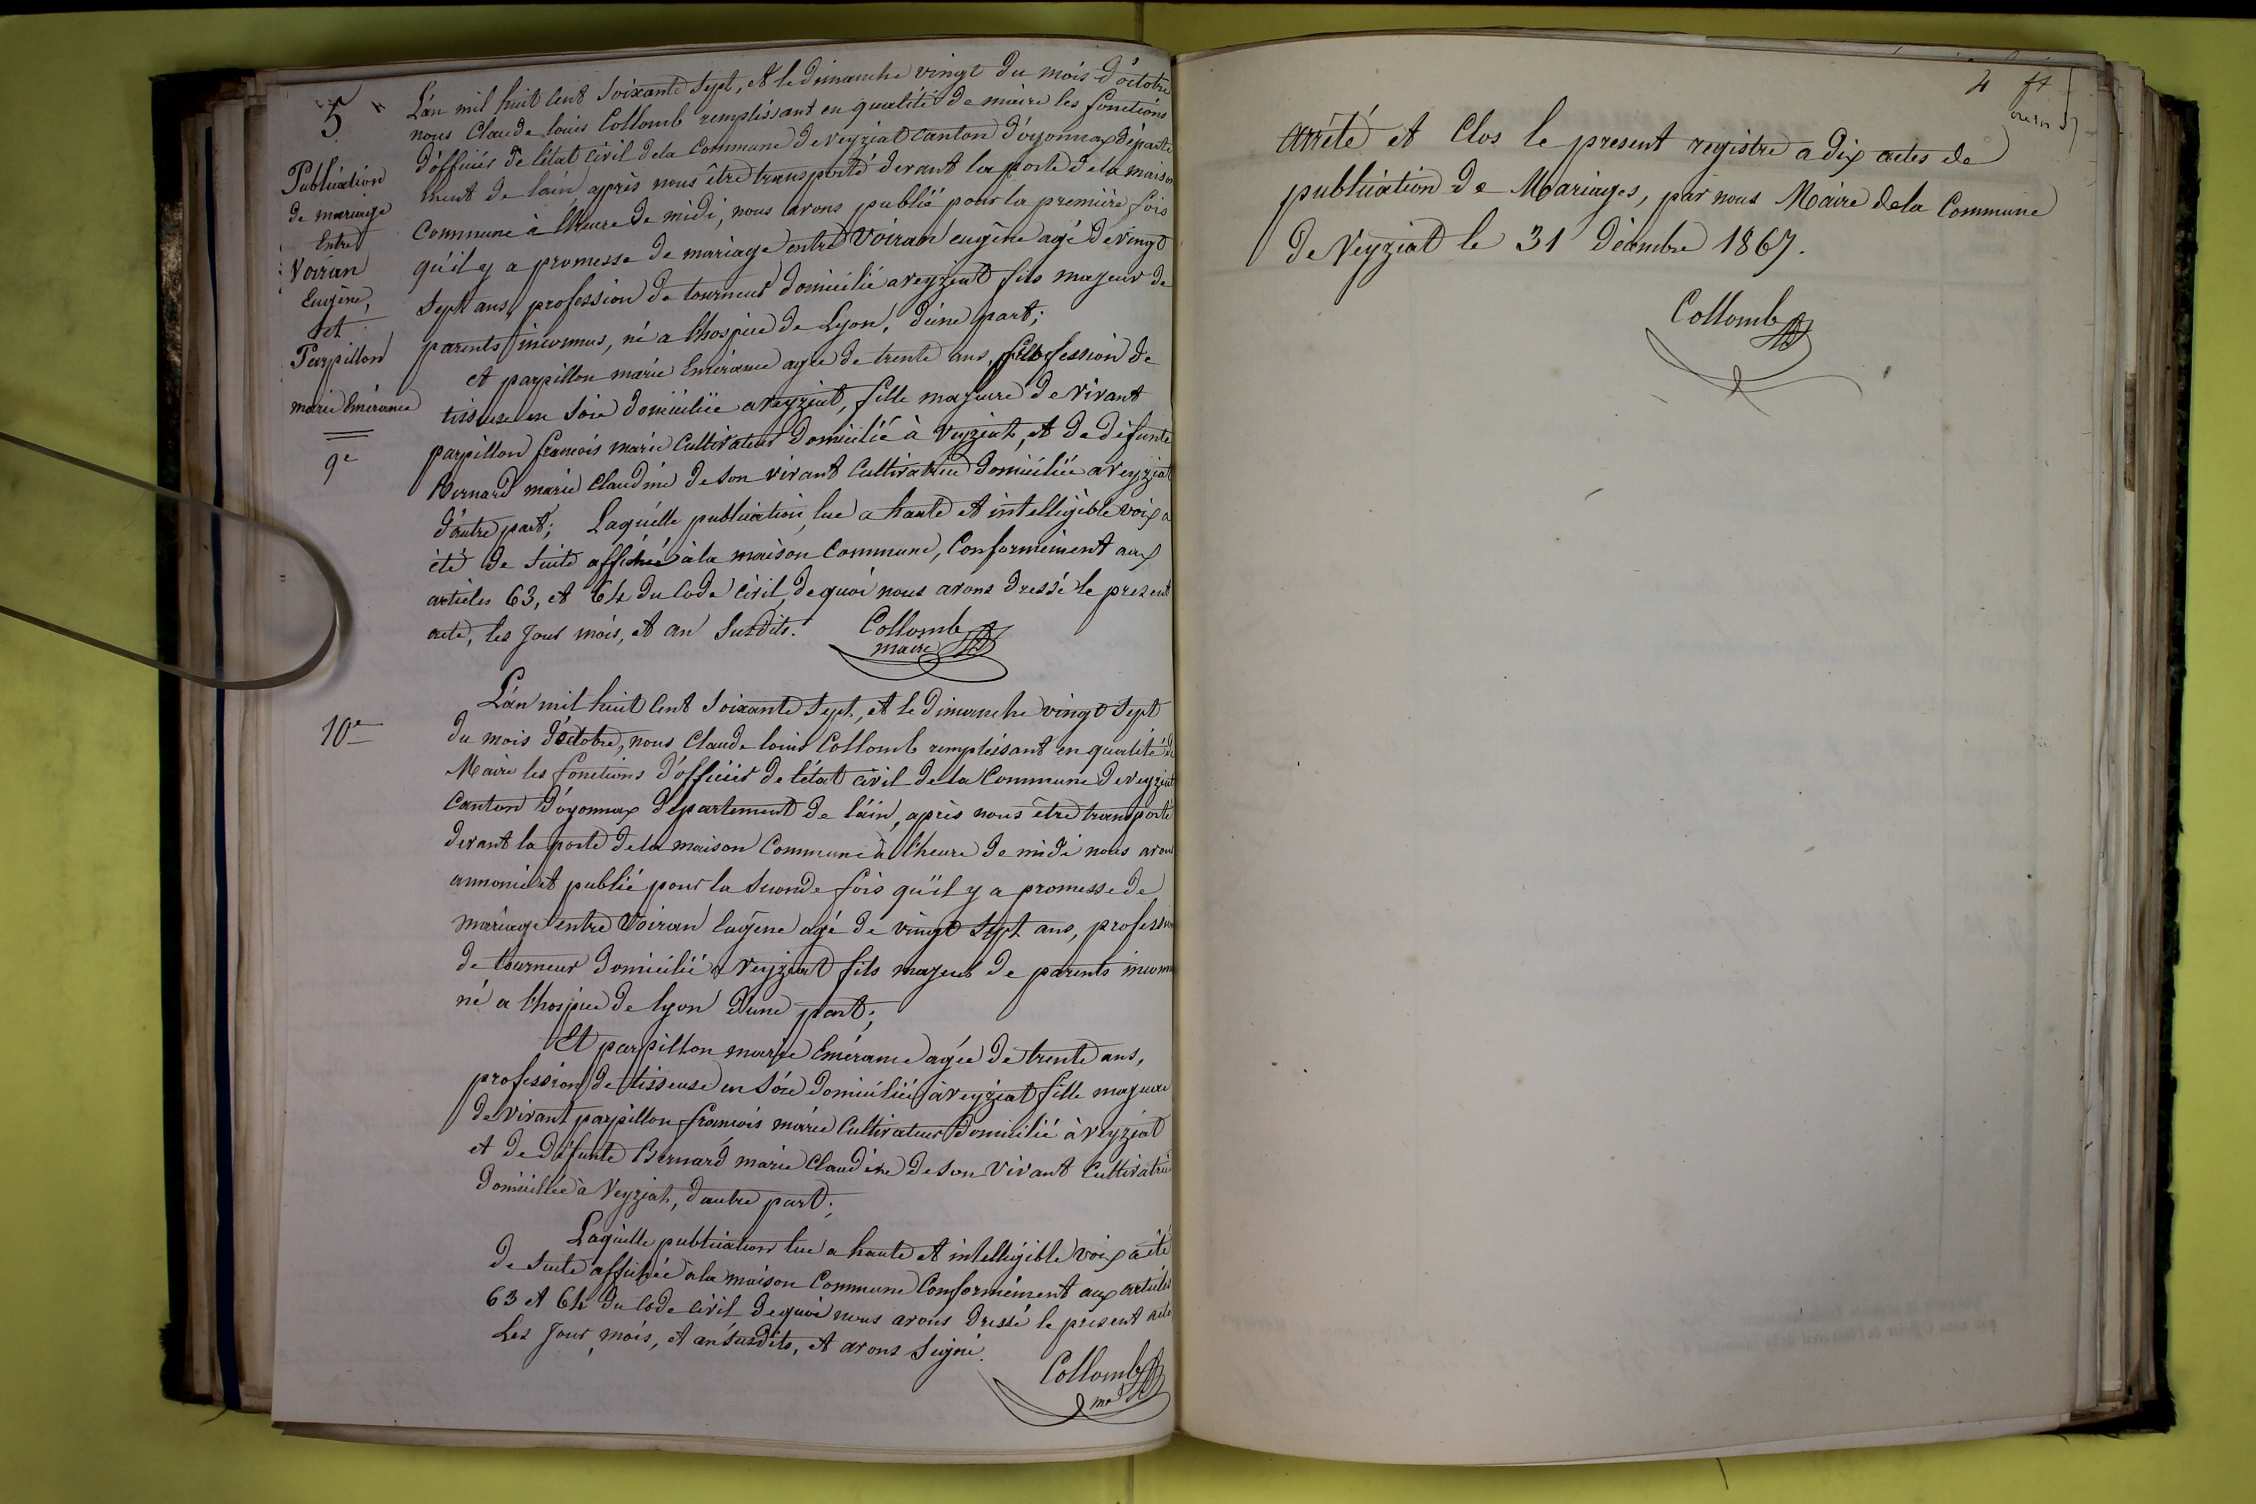 5
Publication
de mariage
Entre
Voiran
Eugène,
et
Parpillon
marie Emérance
9e
L'an mil huit Cent Soixante Sept, et le dimanche vingt du mois d'octobre
nous Claude louis Collomb remplissant en qualité de maire les fonctions
d'officier de l'état Civil de la Commune de veyziat Canton d'oyonnax départe
ment de l'ain, après nous être transporté devant la porte de la maison
Commune à l'heure de midi, nous avons publié pour la première fois
qu'il y a promesse de mariage entre Voiran eugène agé de vingt
Sept ans, profession de tourneur domicilié a veyziat fils majeur de
parents inconnus, né a l'hospice de Lyon, d'une part;
et parpillon marie Emérance agée de trente ans, profession de
tisseuse en Soie domiciliée a veyziat, fille majeure de vivant
parpillon francois marie Cultivateur domicilié à Veyziat, et de défunte
Bernard marie Claudine de son vivant Cultivatrice domiciliée a veyziat
d'autre part; Laquelle publication, lue a haute et intelligible voix a
été de suite affichée à la maison Commune, Conformément aux
articles 63, et 64 du Code Civil, de quoi nous avons dressé le present
acte, les Jour mois, et an Susdits. Collomb
maire
10e
L'an mil huit Cent Soixante Sept, et le dimanche vingt Sept
du mois d'octobre, nous Claude louis Collomb remplissant en qualité de
Maire les fonctions d'officier de l'état civil de la Commune de veyziat
Canton d'oyonnax département de l'ain, après nous être transporté
devant la porte de la maison Commune à l'heure de midi nous avons
annoncé et publié pour la Seconde fois qu'il y a promesse de
mariage entre Voiran Eugène agé de vingt Sept ans, profession
de tourneur domicilié a Veyziat fils majeur de parents inconnus
né a l'hospice de lyon d'une part;
Et parpillon marie Emérance agée de trente ans,
profession de tisseuse en Soie domiciliée à veyziat fille majeure
de vivant parpillon francois marie Cultivateur domicilié à veyziat
et de défunte Bernard marie Claudine de son vivant Cultivatrice
domiciliée à Veyziat, d'autre part;
Laquelle publication lue a haute et intelligible voix a été
de suite affichée a la maison Commune Conformément aux articles
63 et 64 du Code Civil de quoi nous avons dressé le present acte
Les Jour, mois, et an Susdits, et avons Signé.
Collomb
4
arrêté et Clos le present registre a dix actes de
publication de Mariages, par nous Maire de la Commune
de Veyziat le 31 Décembre 1867.
Collomb